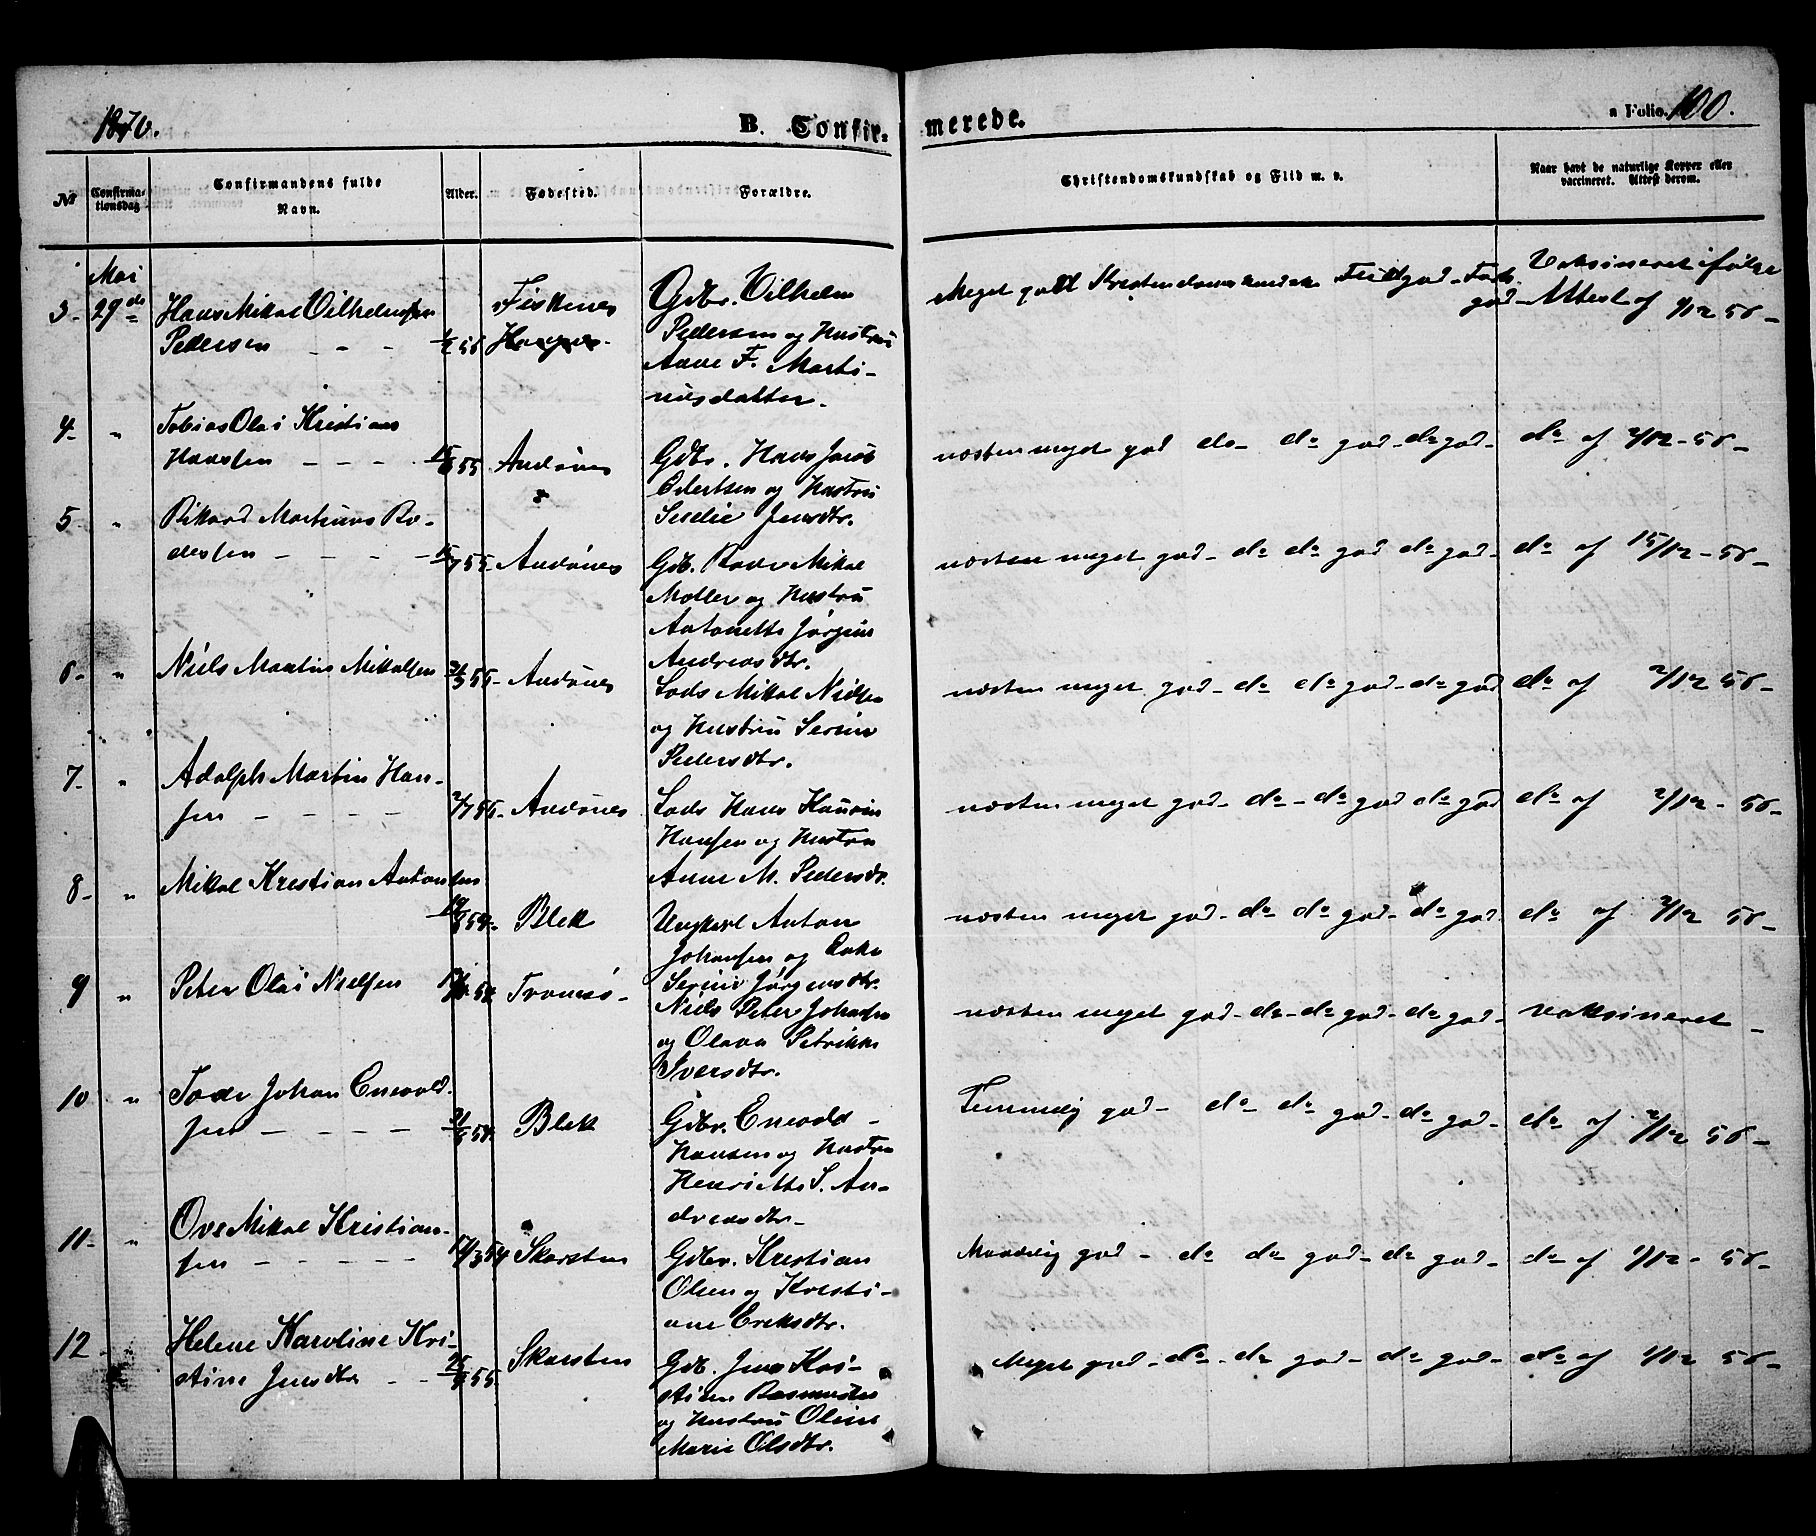 1870.
B. Confir-
merede.
Folio. 100.
No
Confirma-
tionsdag
Confirmandens fulde
Navn.
Alder.
Fødested.
Forældre.
Christendomskundskab og Flid m. v.
Naar havt de naturlige Kopper eller
vaccineret. Attest derom.
3. Mai 29de Hans Mikal Vilhelmsen
Pedersen - - - 55 Fiskenes
Gdbr. Vilhelm
Pedersen og Hustru
Anne F. Marti-
niusdatter.
Meget god Kristendomskundskab Flid god - 
god - Vaksineret ifølge
Attest af 1/12 56 -
4. " Tobias Olai Kristian
Hansen - - - 55 Andønes
Gdbr. Hans Jacob
Edertsen og Hustru
Jensdtr.
næsten meget god do do god do god - do af 2/12 - 56 -
5 " Rikard Martinus Ro-
- - - - 55. Andønes
Gdb. Mikal
Møller og Hustru
Antonette Jørgine
Andreasdtr.
næsten meget god - do do god do god - do af 15/12 - 56 -
6 - " Niels Martin Mikalsen 55 - Andønes
Mikal Nielsen
og Hustru Serine
Pedersdtr.
næsten meget god - do do god - do god do af 2/12 56 -
7 - " Adolph Martin Han-
sen - - - - 2/7 55 - Andønes
Hans
Hansen og Hustru
Anne M. Pedersdtr.
næsten meget god - do - do god do god do af 2/12 - 56 -
8 - " Mikal Krestian Antonsen
54 - Blek
Ungkarl Anton
Johansen og Enke
Serine Jørgensdtr.
næsten meget god - do do god - do god do af 2/12 56 -
9 " Peter Olai Nielsen 54 - Tromsø -
Niels Peter Johansen
og Olava Petrikke
Iversdtr.
næsten meget god - do - do god - do god - vaksineret -
10 " Johan Enevold-
sen - - - - 54 Blek
Gdbr. Enevold
Hansen og Hustru
Henriette S. An-
dreasdtr -
Temmelig god - do do god - do god - do af 2/12 56 -
11 - " Ove Mikal Kristian-
sen - - - - - 17/3 54 Skarsten
Gdbr. Krestian
Olsen og Kresti-
ane Eriksdtr.
Maadelig god - do do god - do god - do af 1/12 - 56 -
12 - Helene Karoline Kri-
stine Jensdtr - - 55 Skarsten
Gdb. Jens Kri-
stian Rasmussen
og Hustru Oline
Marie Olsdtr.
Meget god - do - do god - do god - do af 1/12 56 -